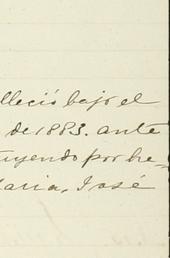 lleció bajo el
de 1883. ante
tuyendo por he-
aria, José